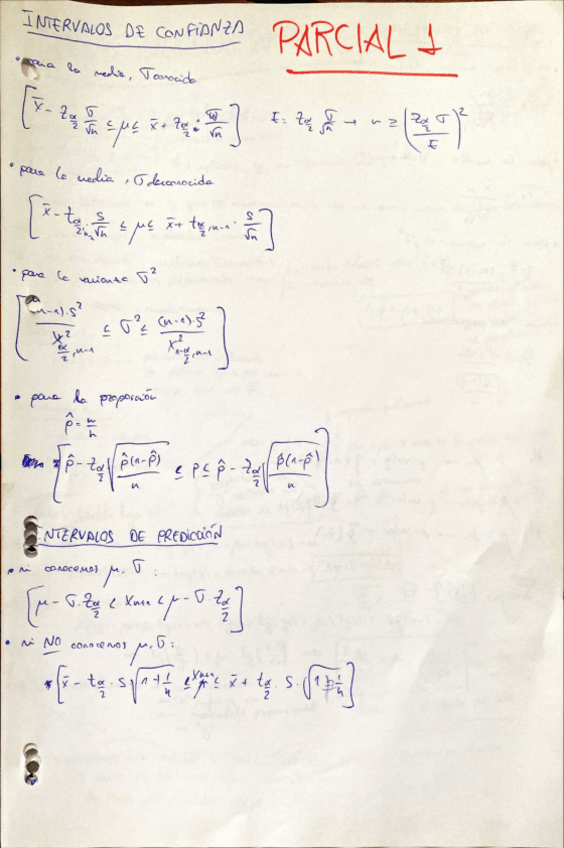 INTERVALOS DE CONFIANZA
PARCIAL 1
• para la media, σ conocida
[x̄ - z_{α/2} σ/√n ≤ μ ≤ x̄ + z_{α/2} · σ/√n]
E = z_{α/2} σ/√n → n ≥ (z_{α/2} σ / E)²
• para la media, σ desconocida
[x̄ - t_{α/2, n-1} · s/√n ≤ μ ≤ x̄ + t_{α/2, n-1} · s/√n]
• para la varianza σ²
[(n-1)·s² / χ²_{α/2, n-1} ≤ σ² ≤ (n-1)·s² / χ²_{1-α/2, n-1}]
• para la proporción
p̂ = x/n
[p̂ - z_{α/2} √(p̂(1-p̂)/n) ≤ p ≤ p̂ - z_{α/2} √(p̂(1-p̂)/n)]
INTERVALOS DE PREDICCIÓN
• si conocemos μ, σ:
[μ - σ·z_{α/2} < x_{n+1} < μ - σ·z_{α/2}]
• si NO conocemos μ, σ:
[x̄ - t_{α/2} · s √(1 + 1/n) ≤ x_{n+1} ≤ x̄ + t_{α/2} · s · √(1 + 1/n)]